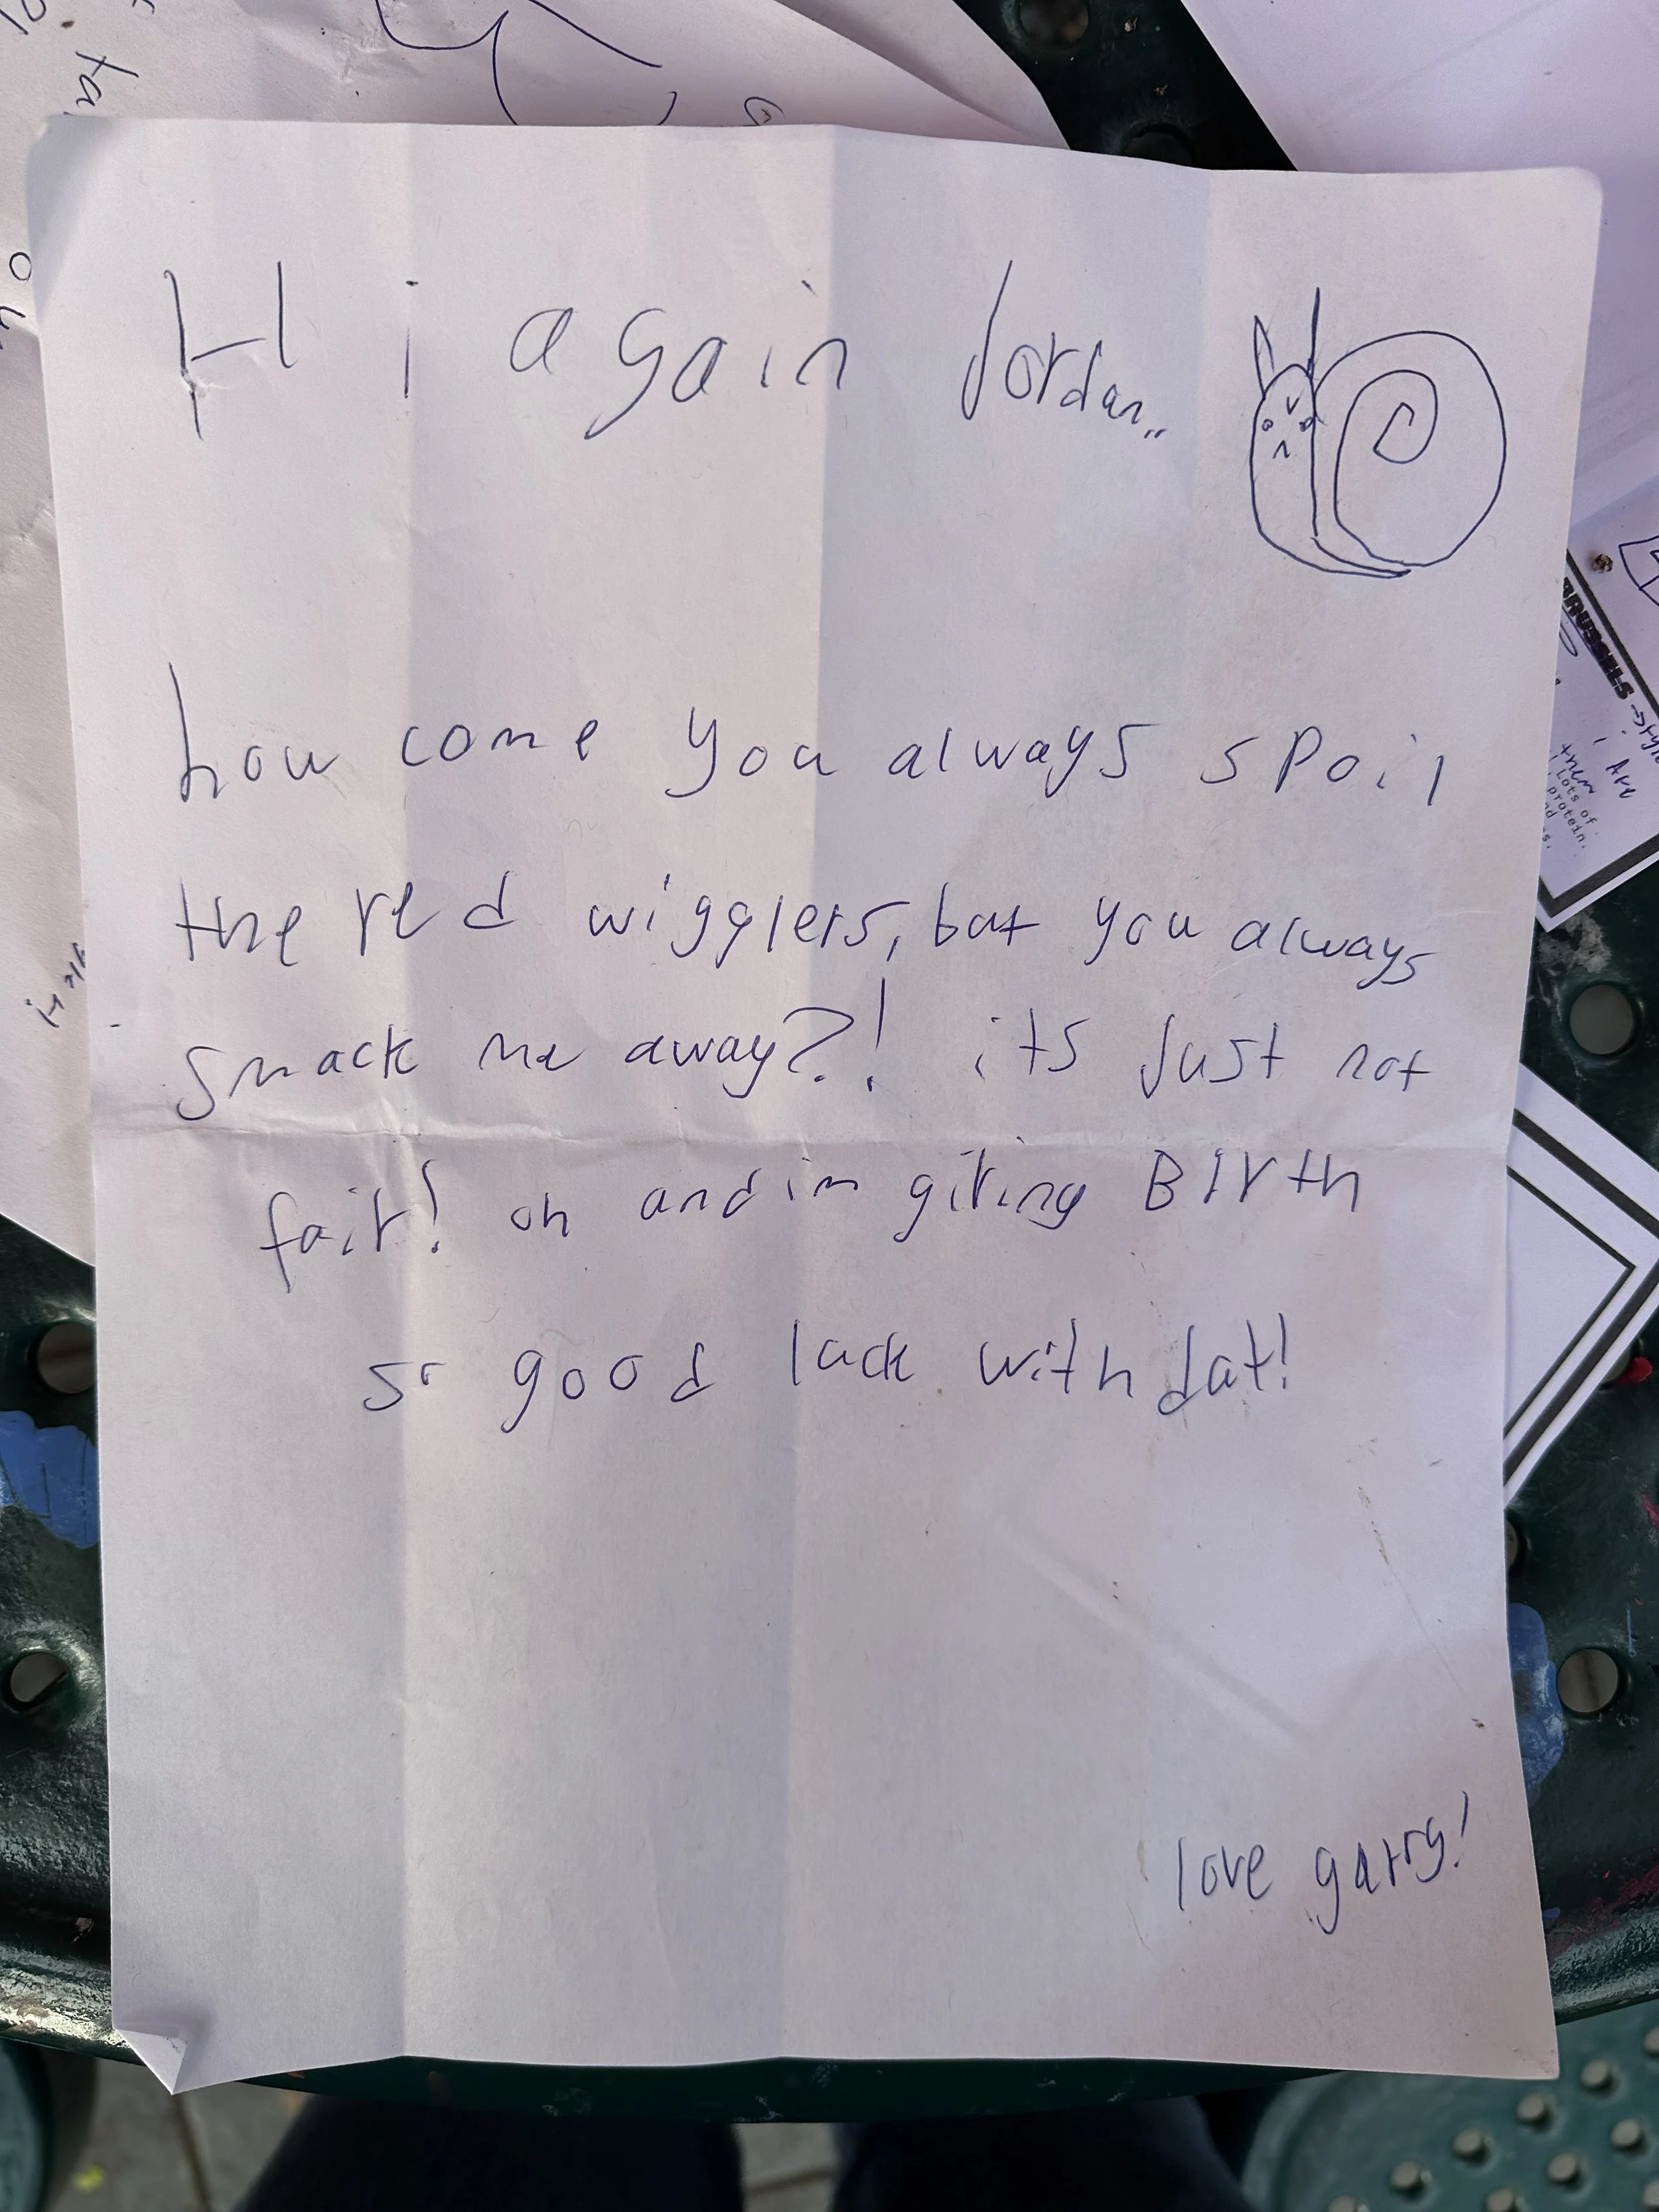 Hi again Jordan..
how come you always spoil
the red wigglers, but you always
smack me away?! its Just not
fair! oh and im giving BIrth
so good luck with dat!
love garry!
BRUSSELS
i Are
them
Lots of
protein.